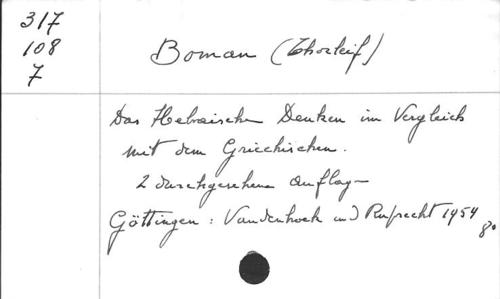 317
108
7
Boman (Thorleif)
Das Hebraische Denken im Vergleich
mit dem Griechischen.
2 durchgesehene Auflag
Göttingen: Vandenhoek und Ruprecht 1954
8°